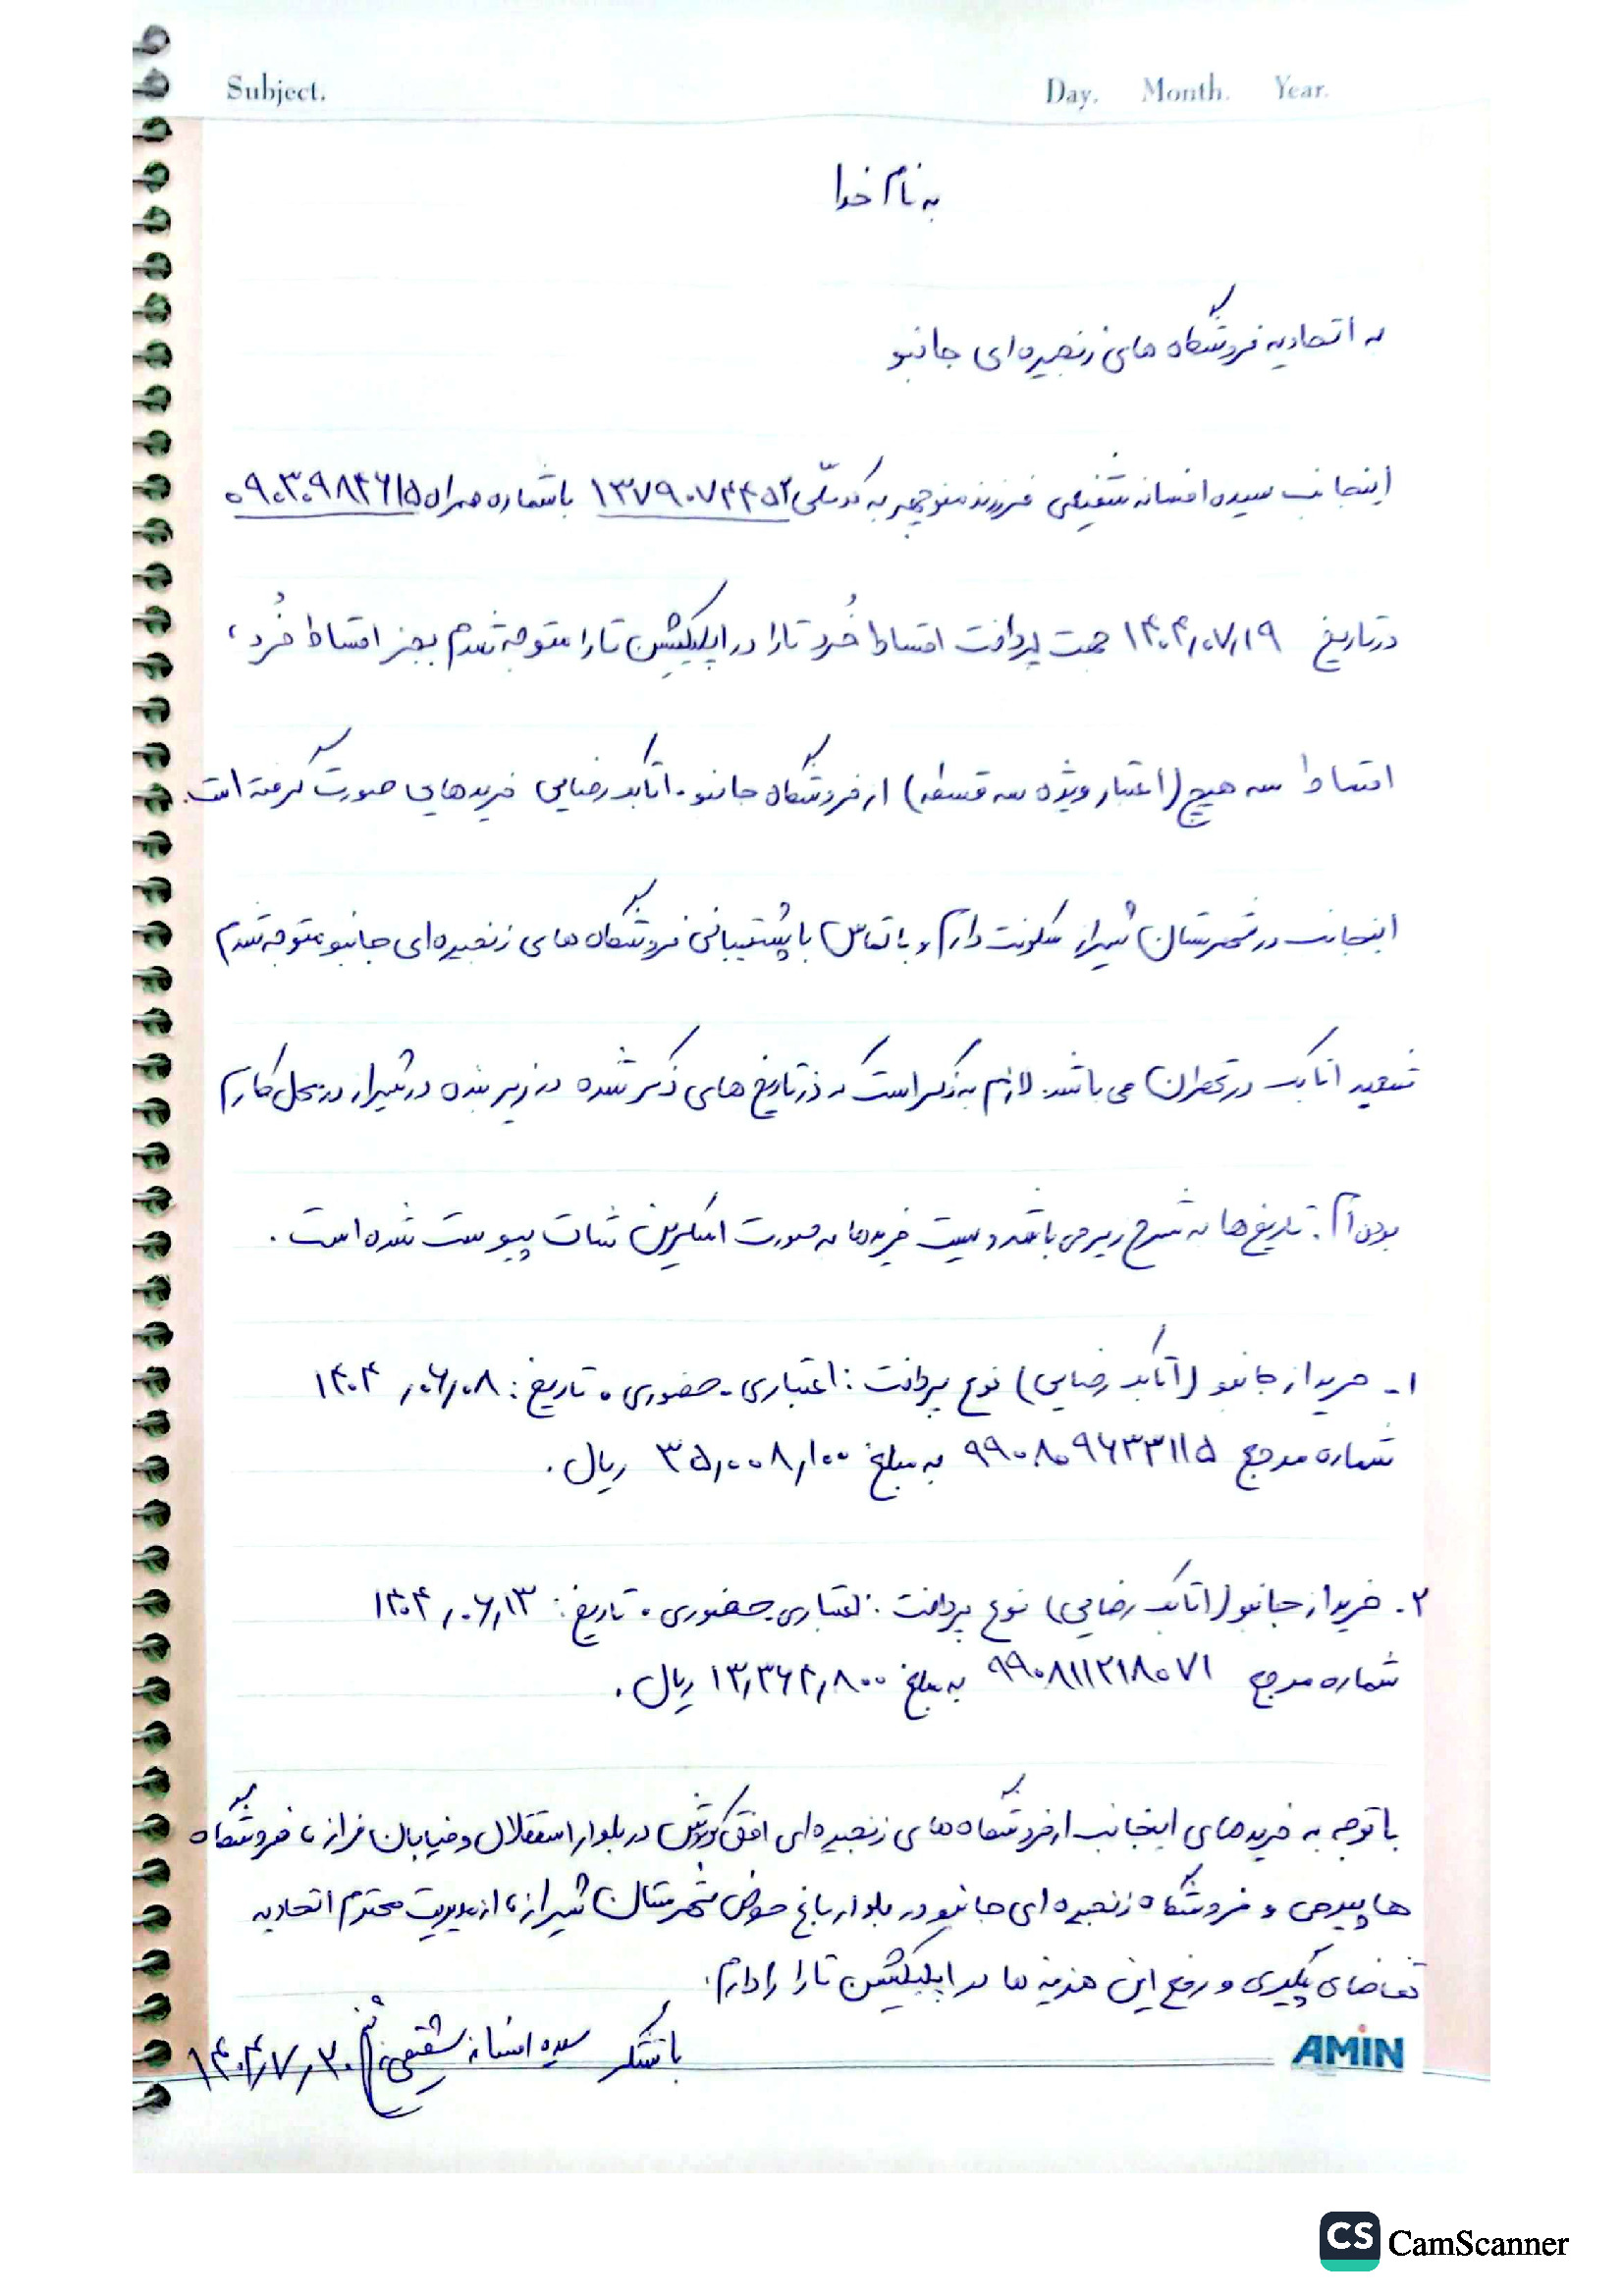 Subject. Day. Month. Year.
به نام خدا
به اتحادیه فروشگاه های زنجیره ای جانبو
اینجانب سیده افسانه شفیعی فرزند منوچهر به کدملّی ۱۳۷۹۰۷۴۴۵۲ با شماره همراه ۰۹۰۳۰۹۸۴۶۱۵
در تاریخ ۱۴۰۴٫۰۷٫۱۹ جهت پرداخت اقساط خُرد تارا در اپلیکیشن تارا متوجه شدم بجز اقساط خُرد،
اقساط سه هیچ (اعتبار ویژه سه قسطه) از فروشگاه جانبو-اتابک رضایی خریدهایی صورت گرفته است.
اینجانب در شهرستان شیراز سکونت دارم و با تماس با پشتیبانی فروشگاه های زنجیره ای جانبو متوجه شدم
شعبه اتابک در تهران می باشد. لازم به ذکر است که در تاریخ های ذکر شده در زیر بنده در شیراز در محل کارم
بوده ام. تاریخ ها به شرح زیر می باشد و لیست خریدها به صورت اسکرین شات پیوست شده است.
۱- خرید از جانبو (اتابک رضایی) نوع پرداخت: اعتباری-حضوری. تاریخ: ۱۴۰۴٫۰۶٫۰۸
شماره مرجع ۹۹۰۸۰۹۶۳۳۱۱۵ به مبلغ ۳۵٫۰۰۸٫۱۰۰ ریال.
۲. خرید از جانبو (اتابک رضایی) نوع پرداخت: اعتباری-حضوری. تاریخ: ۱۴۰۴٫۰۶٫۱۳
شماره مرجع ۹۹۰۸۱۱۲۱۸۰۷۱ به مبلغ ۱۳٫۳۶۴٫۸۰۰ ریال.
با توجه به خریدهای اینجانب از فروشگاه های زنجیره ای افق کوروش در بلوار استقلال و خیابان فراز، فروشگاه
هایپرمی و فروشگاه زنجیره ای جانبو در بلوار باغ حوض شهرستان شیراز، از مدیریت محترم اتحادیه
تقاضای پیگیری و رفع این هزینه ها در اپلیکیشن تارا را دارم.
با تشکر سیده افسانه شفیعی ۱۴۰۴٫۷٫۳۰
AMIN
CS CamScanner